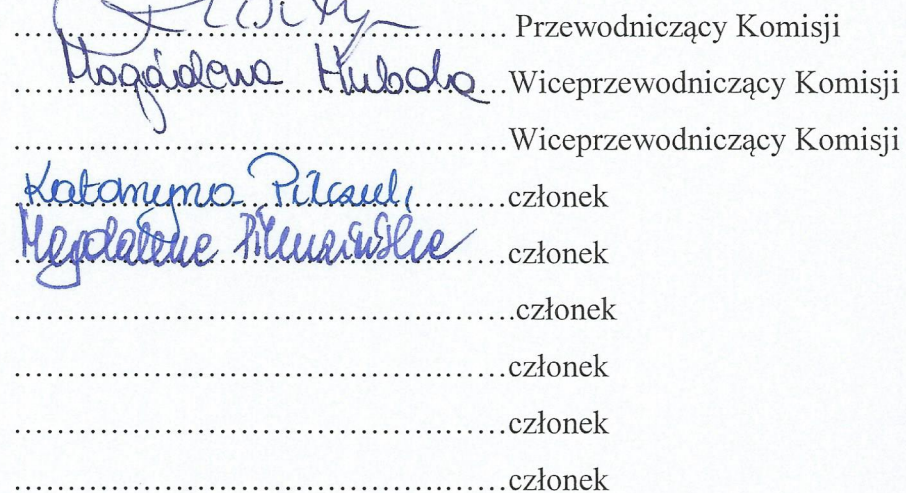 Przewodniczący Komisji
Magdalena Wiceprzewodniczący Komisji
.................................................Wiceprzewodniczący Komisji
Katarzyna członek
Magdalena członek
.................................................członek
.................................................członek
.................................................członek
.................................................członek